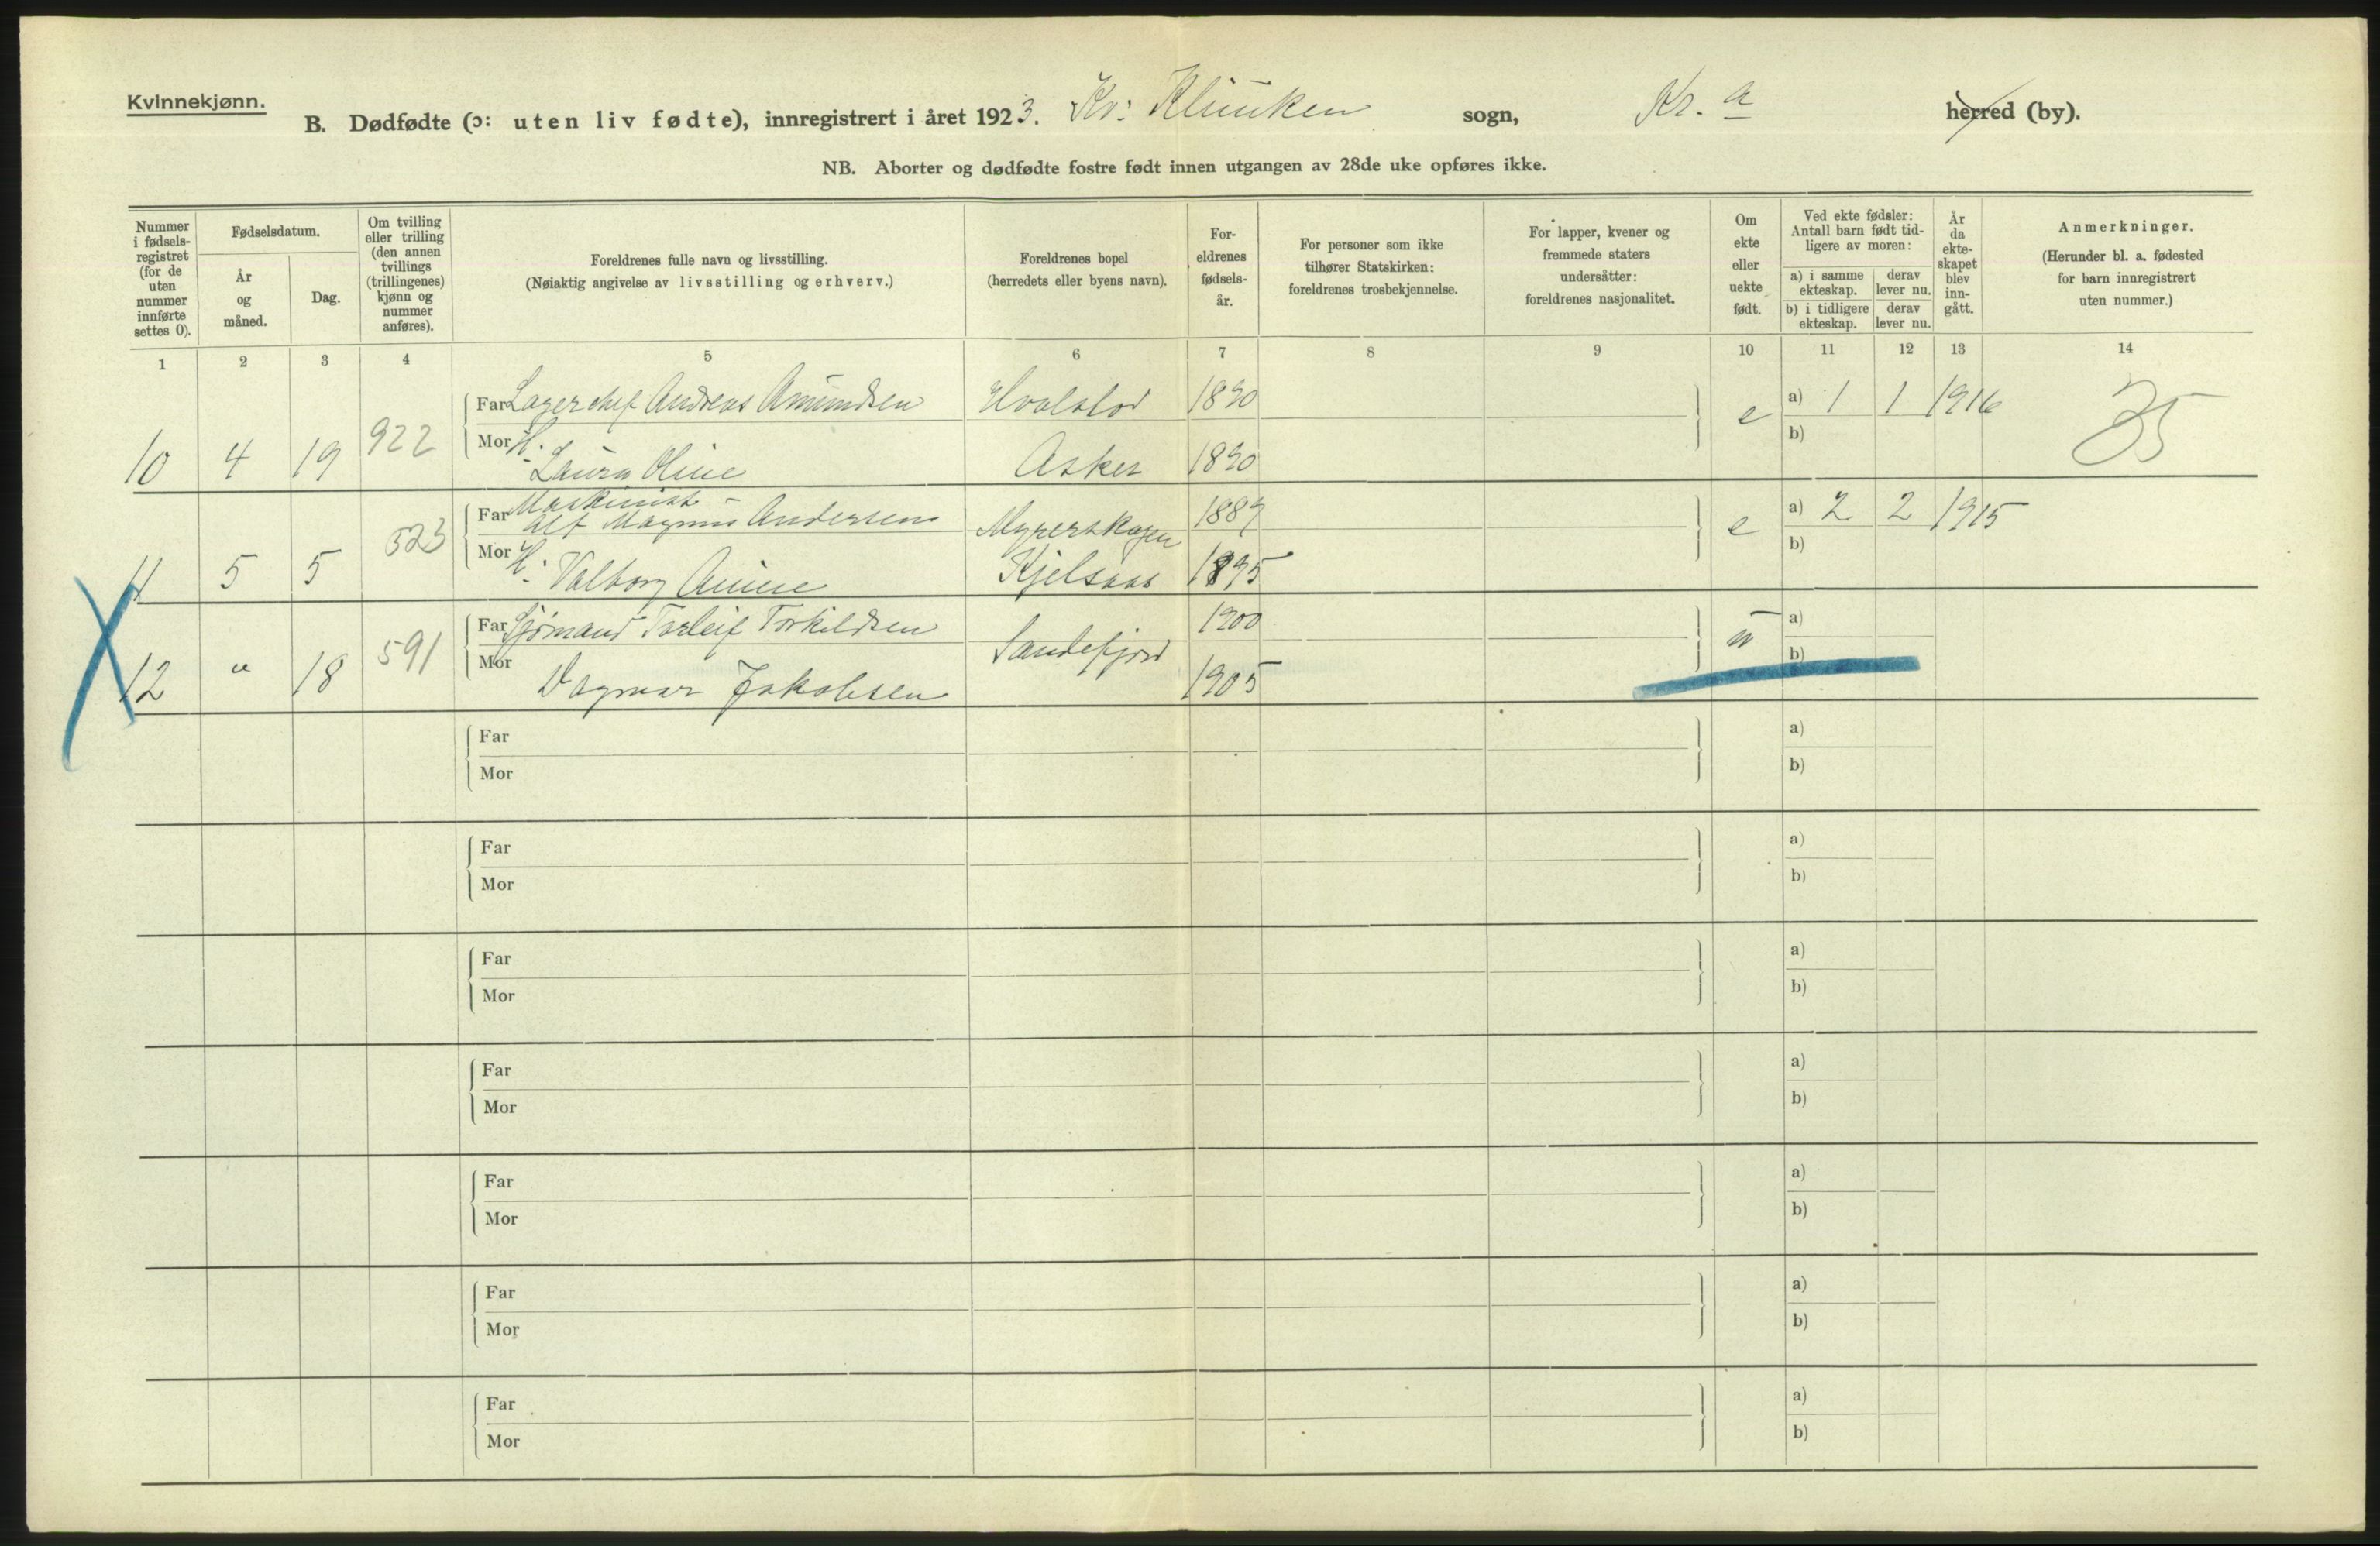 Kvinnekjønn.
B. Dødfødte (ɔ: uten liv fødte), innregistrert i året 1923. Kv: Klinikken sogn, Kr.a herred (by).
NB. Aborter og dødfødte fostre født innen utgangen av 28de uke opføres ikke.
Nummer i fødselsregistret (for de uten nummer innførte settes 0).
Fødselsdatum.
År og måned.
Dag.
Om tvilling eller trilling (den annen tvillings (trillingenes) kjønn og nummer anføres).
Foreldrenes fulle navn og livsstilling.
(Nøiaktig angivelse av livsstilling og erhverv.)
Foreldrenes bopel
(herredets eller byens navn).
Foreldrenes fødselsår.
For personer som ikke tilhører Statskirken: foreldrenes trosbekjennelse.
For lapper, kvener og fremmede staters undersåtter: foreldrenes nasjonalitet.
Om ekte eller uekte født.
Ved ekte fødsler: Antall barn født tidligere av moren:
a) i samme ekteskap. derav lever nu.
b) i tidligere ekteskap. derav lever nu.
År da ekteskapet blev inngått.
Anmerkninger.
(Herunder bl. a. fødested for barn innregistrert uten nummer.)
1 2 3 4 5 6 7 8 9 10 11 12 13 14
Far Lagerchef Andreas Amundsen Hvalstad 1890 e a) 1 1 1916 35
10 4 19 922 Mor H. Laura Oline Asker 1890 b)
Far Maskinist Alf Magnus Andersen Myrerskogen 1889 e a) 2 2 1915
11 5 5 523 Mor H. Valborg Kjelsaas 1895 b)
Far Sjømand Torleif Torkildsen Sandefjord 1900 u a)
12 " 18 591 Mor Dagmar Jakobsen 1905 b)
Far a)
Mor b)
Far a)
Mor b)
Far a)
Mor b)
Far a)
Mor b)
Far a)
Mor b)
Far a)
Mor b)
Far a)
Mor b)